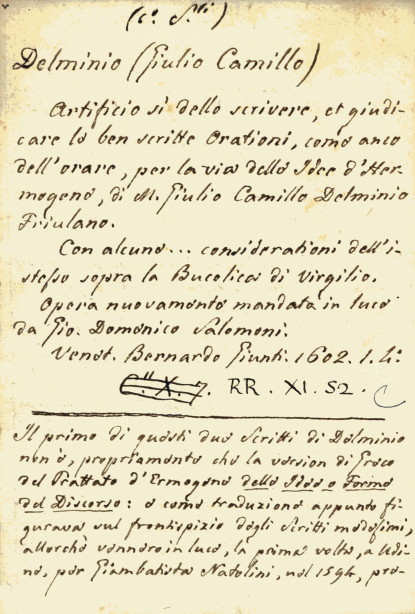 (c.º S.li)
Delminio (Giulio Camillo)
Artificio sì dello scrivere, et giudi-
care le ben scritte Orationi, come anco
dell'orare, per la via delle Idee d'Her-
mogene, di M. Giulio Camillo Delminio
Friulano.
Con alcune... considerationi dell'i-
stesso sopra la Bucolica di Virgilio.
Opera nuovamente mandata in luce
da Gio. Domenico Salomoni.
Venet. Bernardo Giunti. 1602. 1. 4.º
X. 7. RR. XI. 52.
Il primo di questi due Scritti di Delminio
non è, propriamente che la version di Greco
del Trattato d'Ermogene delle Idee o Forme
del Discorso: e come traduzione appunto fi-
gurava sul frontispizio degli Scritti medesimi,
allorchè vennero in luce, la prima volta, a Udi-
ne, per Giambatista Natolini, nel 1594, pro-